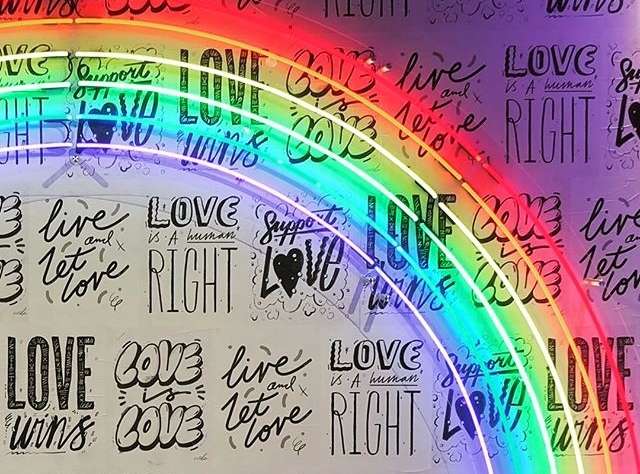 RIGHT
wins
LOVE
RIGHT
Support
LOVE
LOVE
wins
LOVE
is
LOVE
live
and
let
love
LOVE
IS A human
RIGHT
live
and
let
love
LOVE
IS A human
RIGHT
Support
LOVE
LOVE
wins
LOVE
is
LOVE
live
and
let
LOVE
wins
LOVE
is
LOVE
live
and
let
love
LOVE
IS A human
RIGHT
Support
LOVE
LOVE
wins